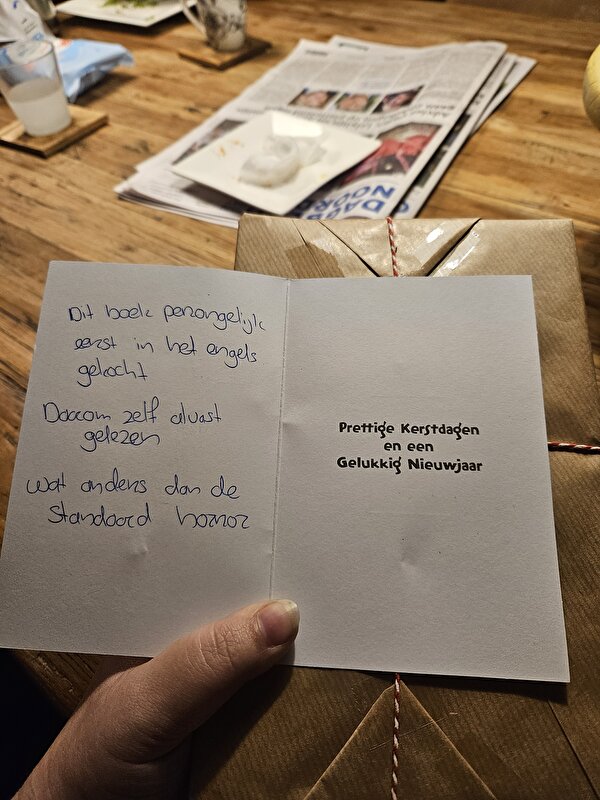 Dit boek perongelijk
eerst in het engels
gekocht
Daarom zelf alvast
gelezen
Wat anders dan de
standaard horror
Prettige Kerstdagen
en een
Gelukkig Nieuwjaar
DAGB
NOOR